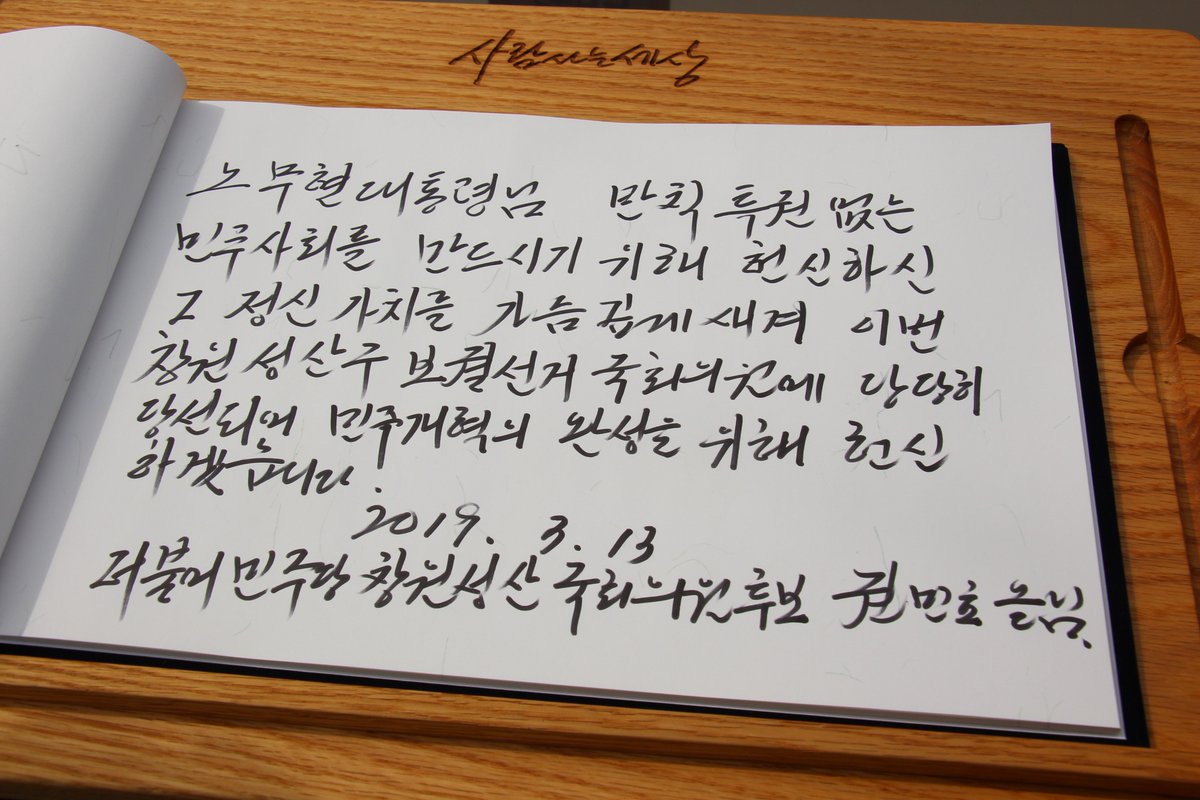 사람사는세상
노무현대통령님 반칙 특권 없는
민주사회를 만드시기 위해 헌신하신
그 정신 가치를 가슴깊게 새겨 이번
창원성산구 보궐선거 국회의원에 당당히
당선되어 민주개혁의 완성을 위해 헌신
하겠습니다.
2019. 3. 13
더불어민주당 창원성산 국회의원후보 권민호 올림.